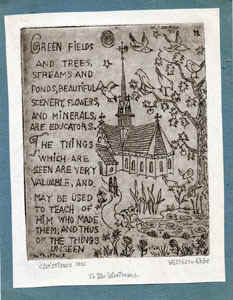 GREEN FIELDS
AND TREES,
STREAMS AND
PONDS, BEAUTIFUL
SCENERY, FLOWERS,
AND MINERALS,
ARE EDUCATORS.
THE THINGS
WHICH ARE
SEEN ARE VERY
VALUABLE, AND,
MAY BE USED
TO TEACH OF
HIM WHO MADE
THEM, AND THUS
OF THE THINGS
UNSEEN